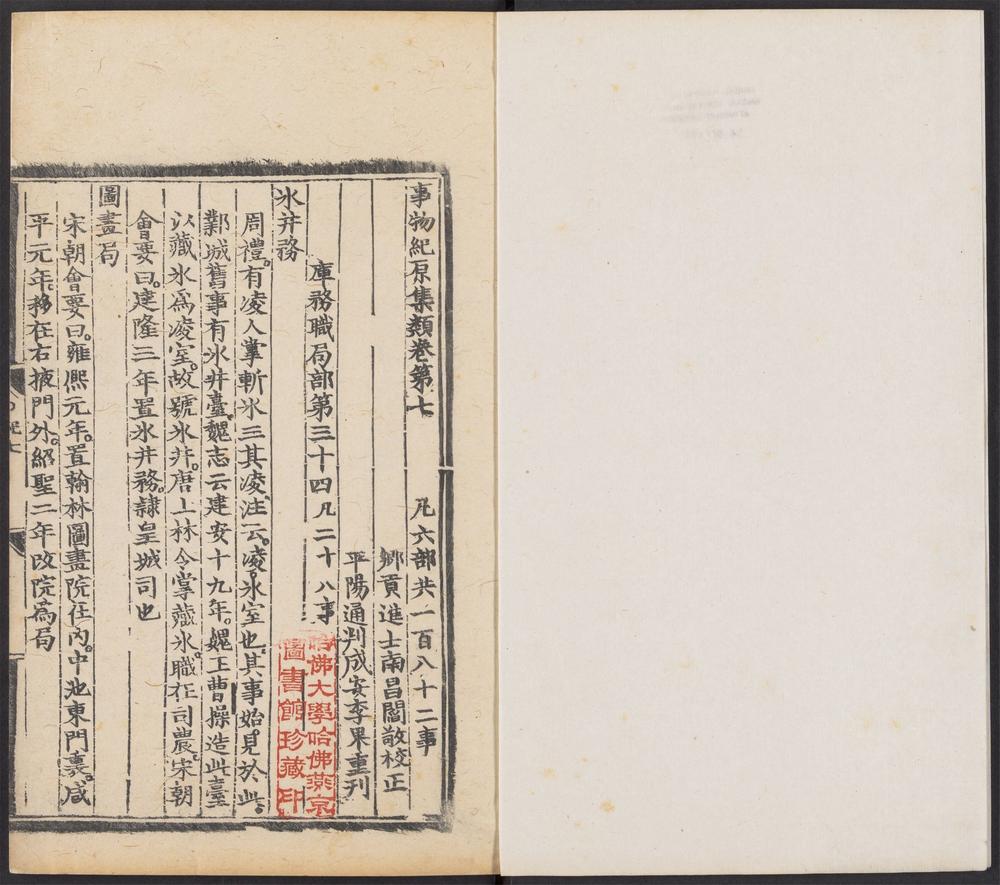 事物紀原集類卷第七 凡六部共一百八十二事
鄉貢進士南昌閻敬校正
平陽通判成安李果重刊
庫務職局部第三十四凡二十八事
氷井務
周禮。有凌人掌斬氷三其凌注云。凌氷室也。其事始見於此。
鄴城舊事有氷井臺。魏志云建安十九年。魏王曹操造此臺
以藏氷爲凌室。故號氷井。唐上林令掌藏氷。職在司農。宋朝
會要曰。建隆三年置氷井務。隷皇城司也
圖畫局
宋朝會要曰。雍熈元年。置翰林圖畫院在內。中池東門裏。咸
平元年。移在右掖門外。紹聖二年改院爲局
哈佛大學哈佛燕京
圖書館珍藏印